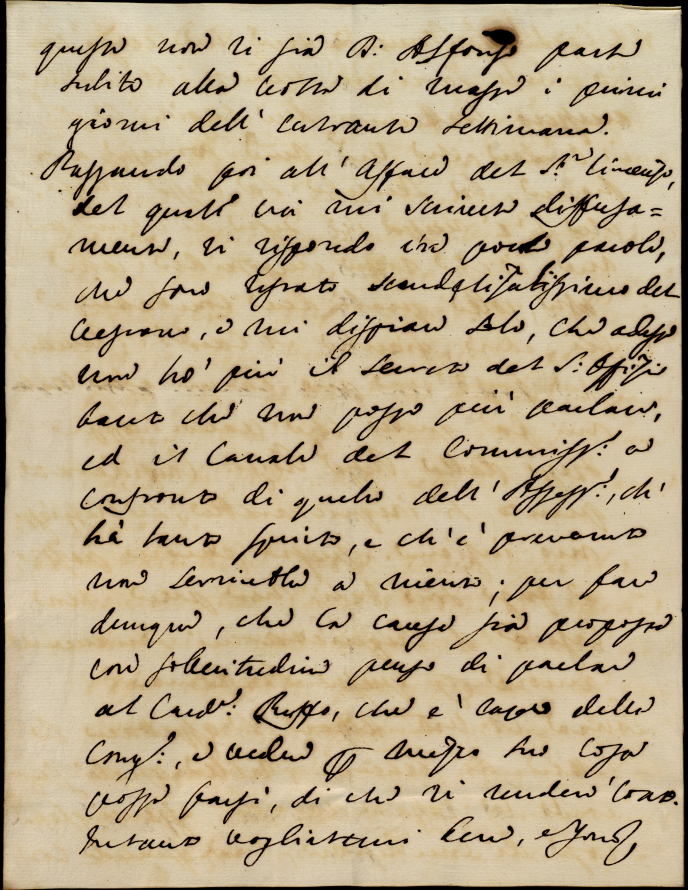 questa non vi sia D: Alfonso parte
subito alla volta di Massa i primi
giorni dell' entrante settimana.
Passando poi all' affare del Sr. Vincenzo,
del quale voi mi scrivete diffusa=
mente, vi rispondo in poche parole,
che sono restato scandalizatissimo del
, e mi dispiace solo, che adesso
non ho' più il secreto del S: Offizio
tanto che non posso più parlare,
ed il canale del Commiss.: a
confronto di quello dell' Assess.:, ch'
hà tanto spirito, e ch'è
non servirebbe a niente; per fare
dunque, che la causa sia proposta
con sollecitudine penso di parlare
al Card.: Ruffo, che e' capo della
Cong.:, e vedere p mezzo suo cosa
possa farsi, di che vi renderò conto.
Intanto vogliatemi bene, e